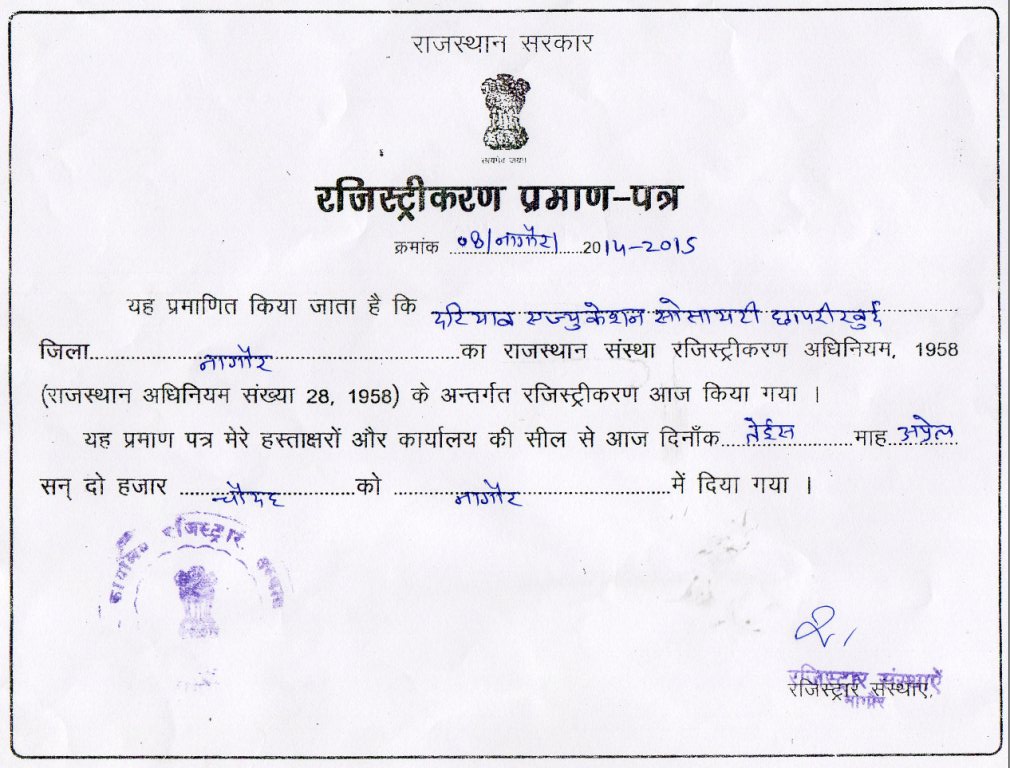 राजस्थान सरकार
सत्यमेव जयते
रजिस्ट्रीकरण प्रमाण-पत्र
क्रमांक 08/नागौर/ 2014-2015
यह प्रमाणित किया जाता है कि दरियाव एज्युकेशन सोसायटी छापरीखुर्द
जिला नागौर का राजस्थान संस्था रजिस्ट्रीकरण अधिनियम, 1958
(राजस्थान अधिनियम संख्या 28, 1958) के अन्तर्गत रजिस्ट्रीकरण आज किया गया ।
यह प्रमाण पत्र मेरे हस्ताक्षरों और कार्यालय की सील से आज दिनाँक तेईस माह अप्रेल
सन् दो हजार चौदह को नागौर में दिया गया ।
कार्यालय रजिस्ट्रार
रजिस्ट्रार संस्थाऐं
रजिस्ट्रार संस्थाएं
नागौर